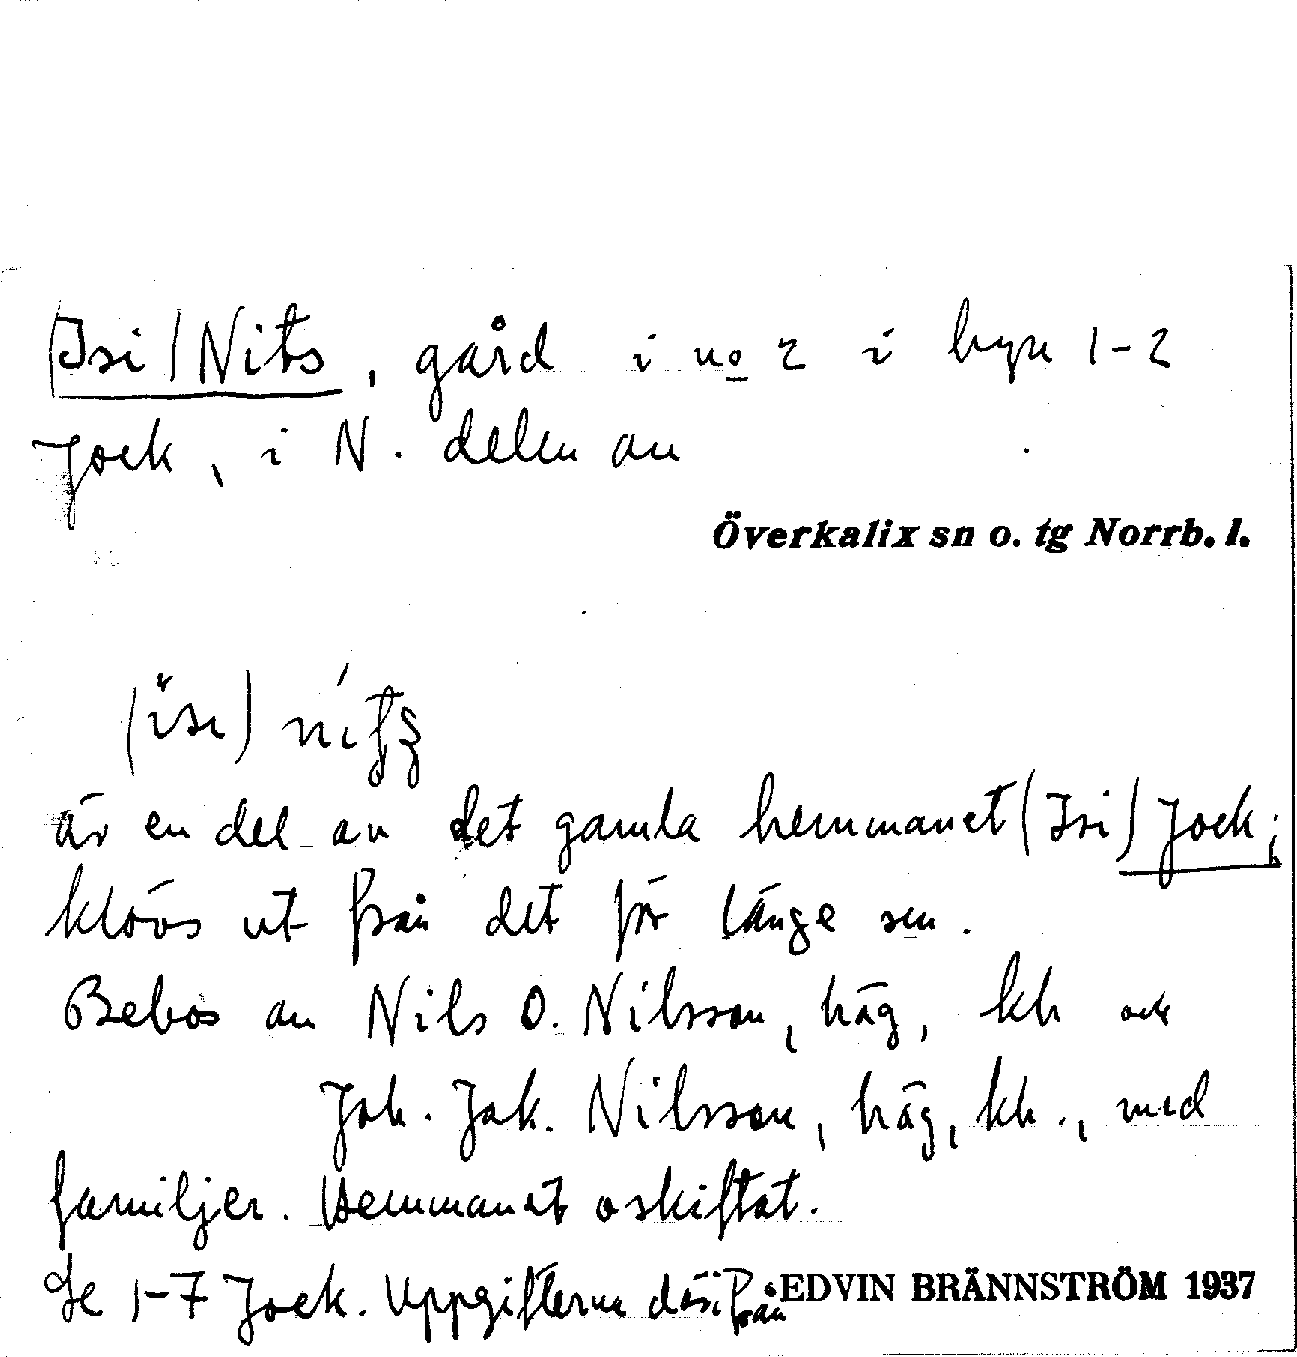 Isi/Nits, gård i no 2 i byn 1-2
Jock, i N. delen av
Överkalix sn o. tg Norrb. l.
är en del av det gamla hemmanet (Isi) Jock;
klövs ut från det för länge sen.
Bebos av Nils O. Nilsson, häg, kh och
Joh. Jak. Nilsson, häg, kh., med
familjer. Hemmanet oskiftat.
Se 1-7 Jock. Uppgifterna därifrån
EDVIN BRÄNNSTRÖM 1937